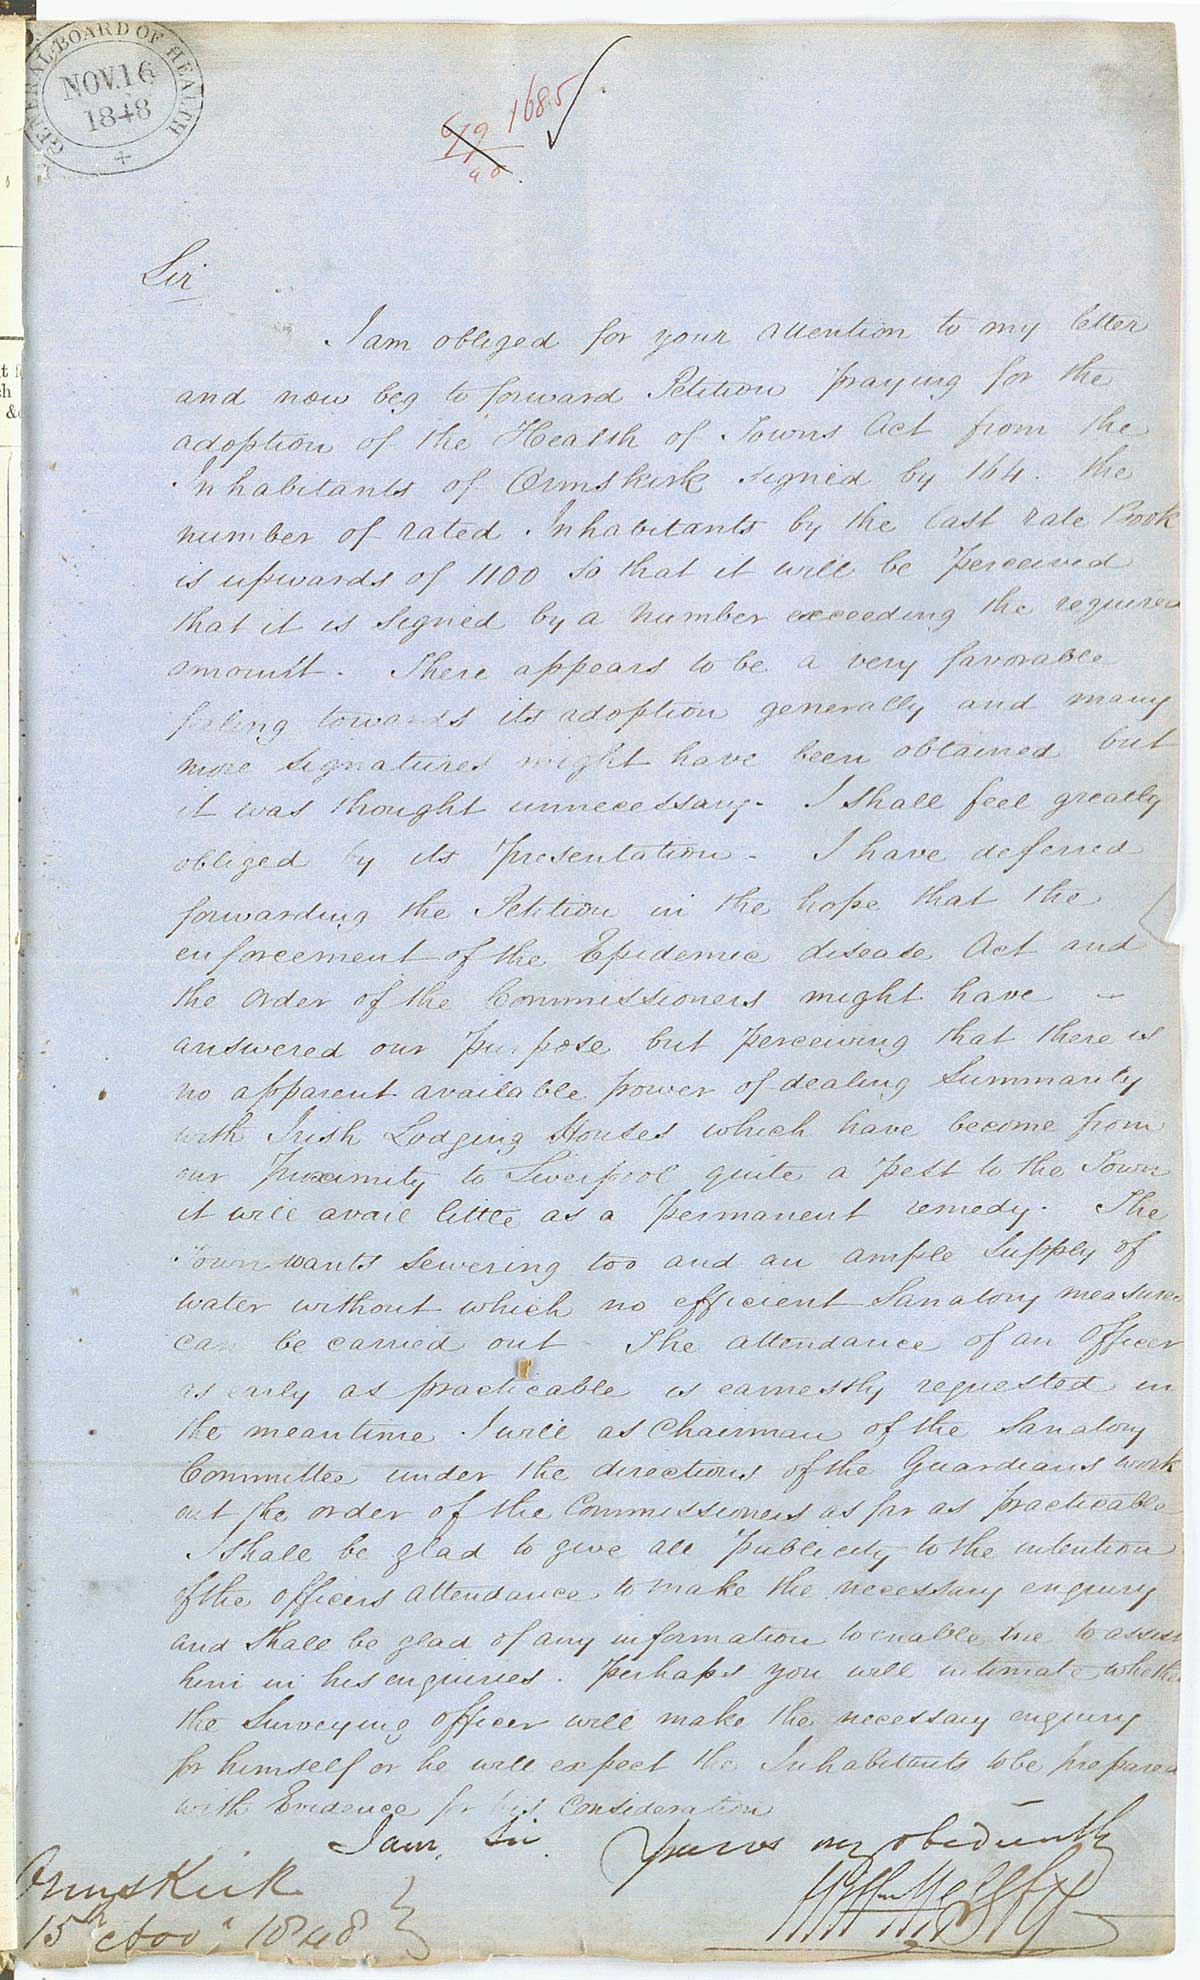 GENERAL BOARD OF HEALTH
NOV. 16
1848
1685
Sir
I am obliged for your attention to my letter
and now beg to forward Petition praying for the
adoption of the Health of Towns Act from the
Inhabitants of Ormskirk signed by 164. the
number of rated Inhabitants by the last rate Book
is upwards of 1100 so that it will be perceived
that it is signed by a number exceeding the required
amount. There appears to be a very favorable
feeling towards its adoption generally and many
more signatures might have been obtained but
it was thought unnecessary. I shall feel greatly
obliged by its presentation. I have deferred
forwarding the Petition in the hope that the
enforcement of the Epidemic disease Act and
the order of the Commissioners might have
answered our purpose but perceiving that there is
no apparent available power of dealing summarily
with Irish Lodging Houses which have become from
our proximity to Liverpool quite a pest to the Town
it will avail little as a permanent remedy. The
Town wants sewering too and an ample supply of
water without which no efficient Sanatory measures
can be carried out The attendance of an Officer
as early as practicable is earnestly requested in
the meantime I will as Chairman of the Sanatory
Committee under the directions of the Guardians work
out the order of the Commissioners as far as practicable
I shall be glad to give all publicity to the intention
of the officers attendance to make the necessary enquiry
and shall be glad of any information to enable me to assist
him in his enquiries. perhaps you will intimate whether
the Surveying officer will make the necessary enquiry
for himself or he will expect the Inhabitants to be prepared
with Evidence for his consideration
I am, Sir
Yours very obediently
Ormskirk
15th Novr 1848